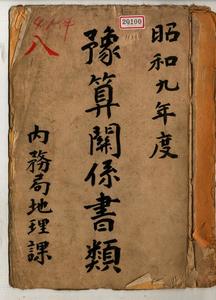 昭和九年度
豫算關係書類
內務局地理課
八
20100